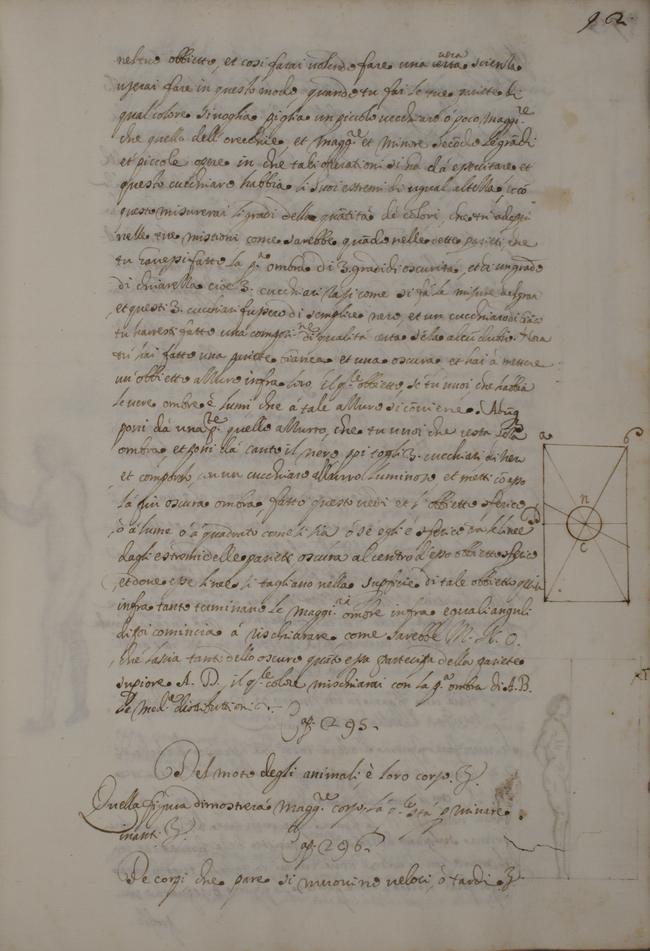 92
nel tuo obbietto, et così farai volendo fare una vera scientia
userai fare in questo modo quando tu fai le tue pariete di
qual colore si voglia piglia un piccolo cucchiaro ò poco magg.re
che quello dell'orecchie, et magg.re et minore secōdo le grādi
et piccole opere in che tali operationi si hà dà esercitare et
questo cucchiaro habbia li suoi estremi di ugual altezza, et cō
questo misurerai li gradi della quātità dè colori che tù adopri
nelle tue mistioni come sarebbe quādo nelle dette parieti che
tu havessi fatto la p.a ombra di 3. gradi di oscurità, et d'un grado
di chiarezza cioè 3. cucchiari rasi come si fà la misura del gran
et questi 3. cucchiari fussero di semplice nero, et un cucchiaro di biāco
tu haveresti fatto una compos.ne di qualità certa sēza alcū dubio. Hora
tu hai fatto una pariete bianca et una oscura et hai à mettere
un obbietto azzurro infra loro, il q.le obbietto se tu vuoi, che habbia
le vere ombre è lumi che à tale azzurro si cōviene.
poni dà una p.te quello azzurro, che tu vuoi che resta sēza
ombra et poni dà canto il nero poi togli 3. cucchiari di nero
et componli con un cucchiaro azzurro luminoso et metti cō esso
la più oscura ombra, fatto questo vedi se l'obbietto è sferico
ò à lume ò à quadrato come si sia ò se egli è sferico tira le linee
dagli estremi delle pariete oscura al centro d'esso obbietto sferico
et dove esse linee si tagliano nella superficie di tale obbietto
infra tanto terminano le maggi.ri ombre infra equali anguli
di poi comincia à rischiarare come sarebbe N. N. O.
che lascia tanto dello oscuro quāto essa partecipa della pariete
supiore A. D. il q.le colore mischiarai con la p.a ombra di A. B.
Cap. 295.
Del moto degli animali è loro corso.
Quella figura dimostrerà magg.re corso
inanti.
Cap. 296.
De corpi che pare si muovino veloci, ò tardi
a
b
n
c
D